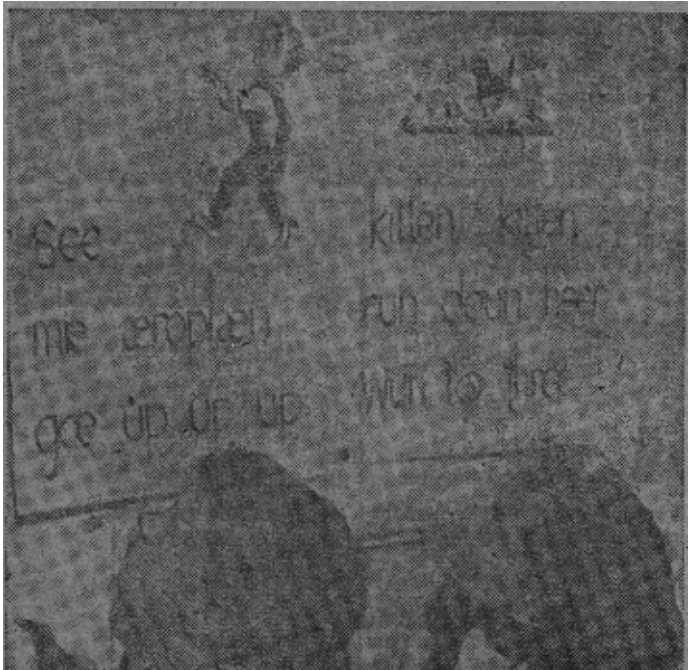 See
mie æroplæn
gœ up up up
kitten kitten
run doun heer
wun tω